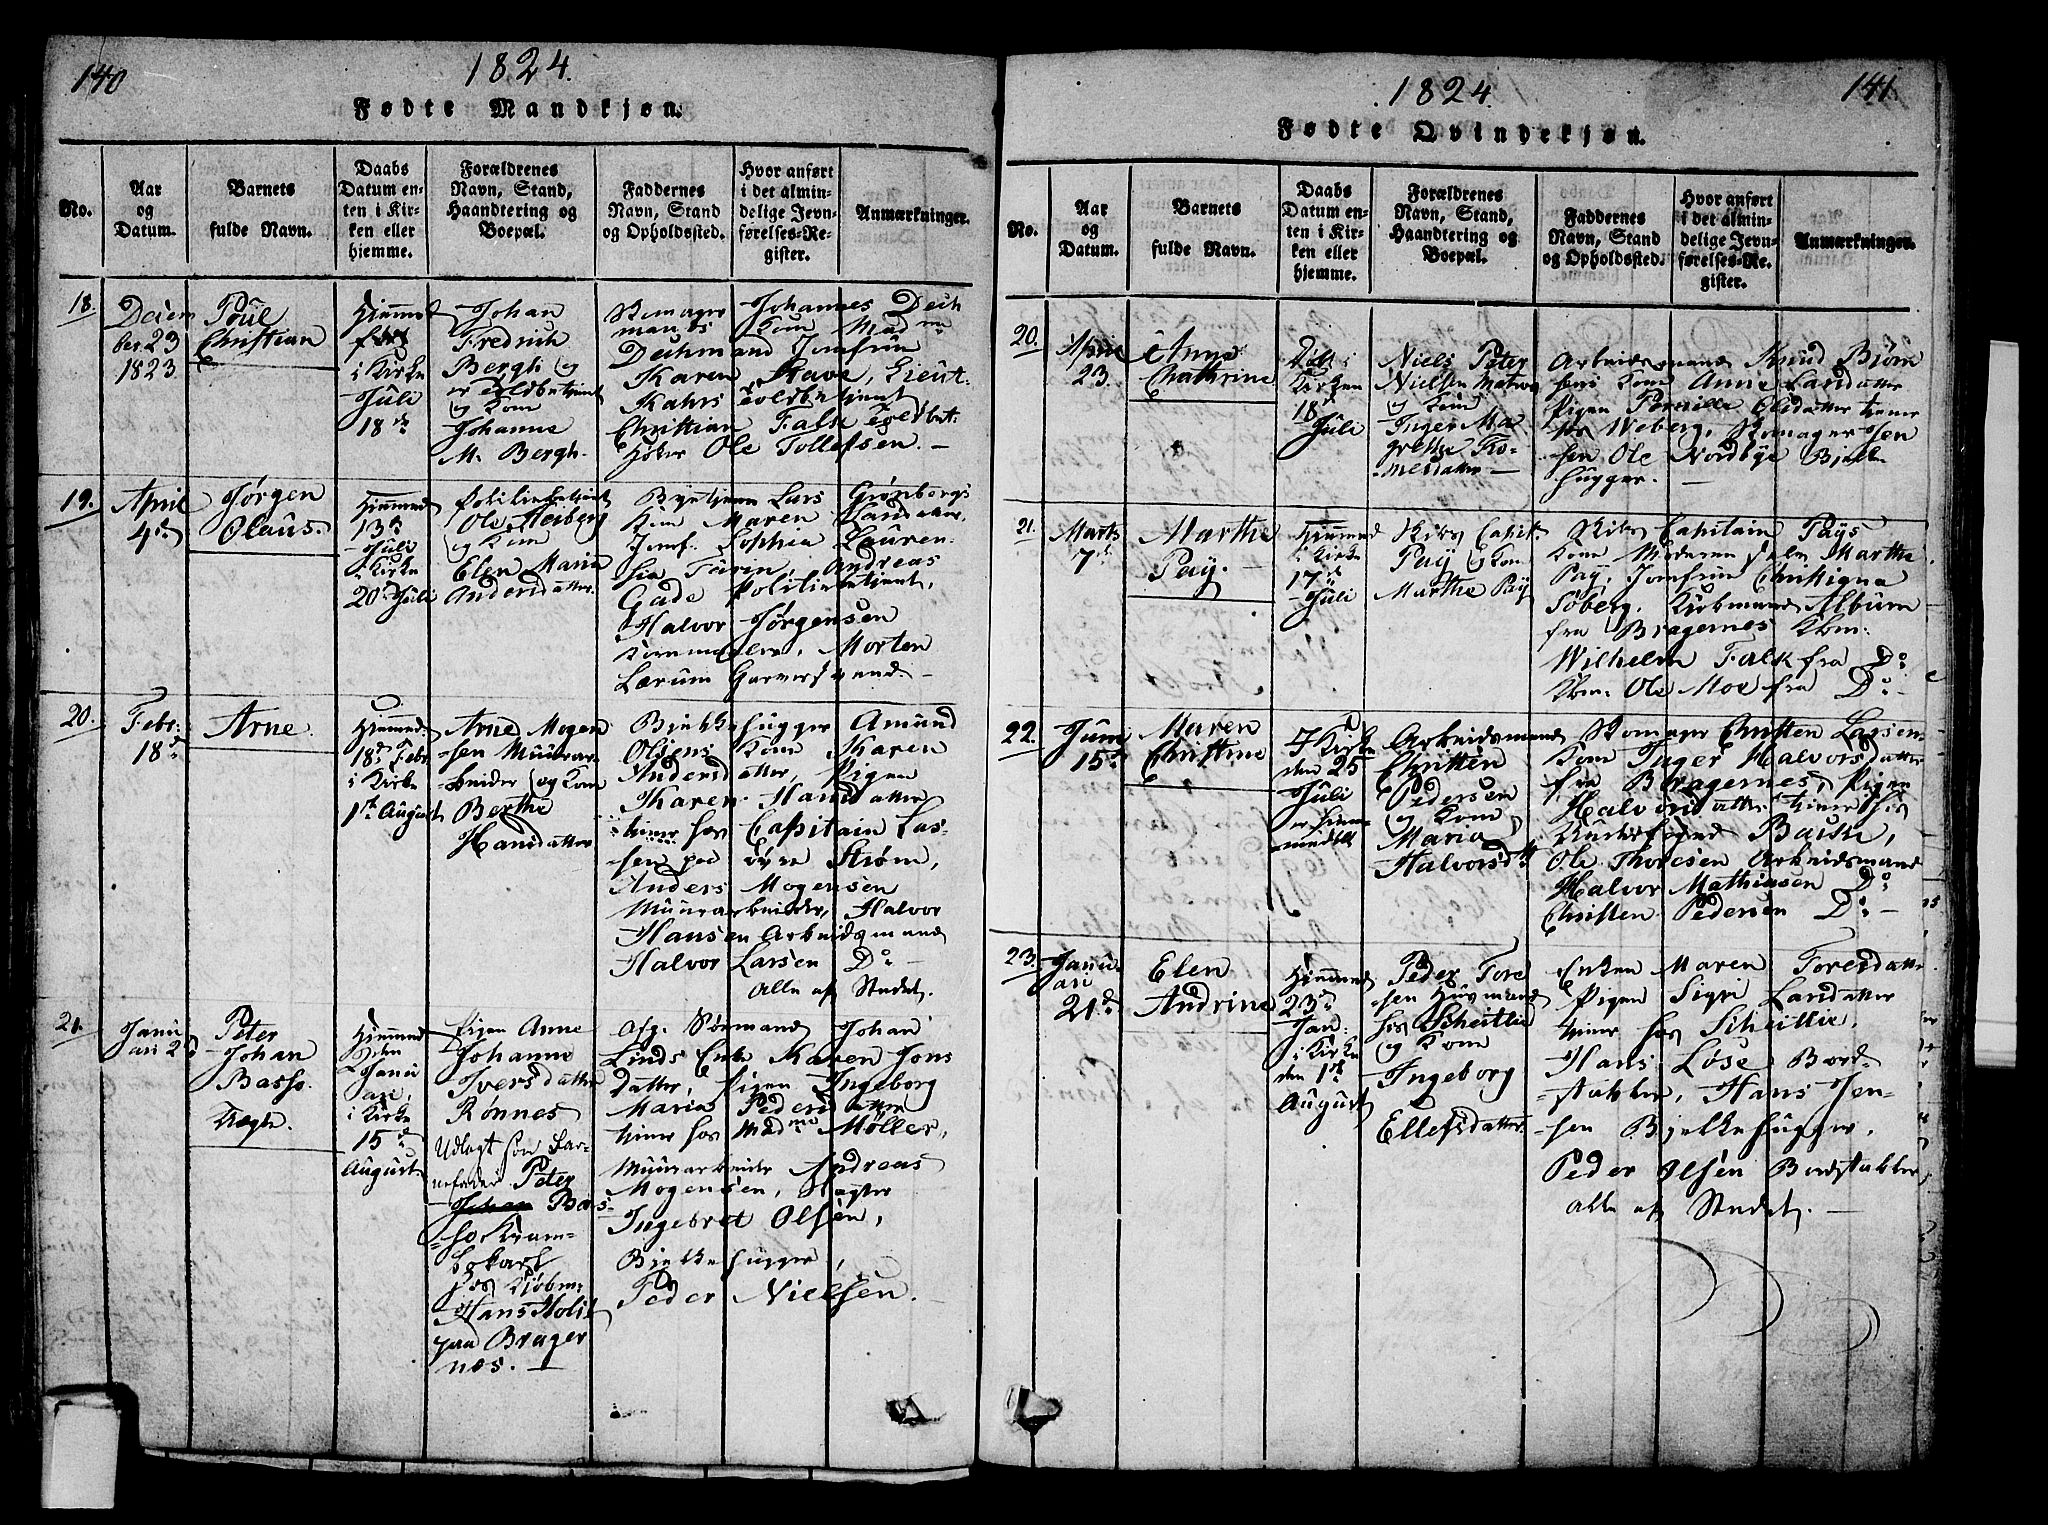 140
1824.
Fødte Mandkjøn.
No.
Aar
og
Datum.
Barnets
fulde Navn.
Daabs
Datum en-
ten i Kir-
ken eller
hjemme.
Forældrenes
Navn, Stand,
Haandtering og
Boepæl.
Faddernes
Navn, Stand
og Opholdssted.
Hvor anført
i det almin-
delige Jevn-
førelses-Re-
gister.
Anmærkninger.
18.
Decem
ber 23
1823
Poul
Christian
Hiemed
i Kirke
Juli
18de
Johan
Fredrich
Bergh og
Kone
Johanne
M. Bergh.
Skomager Johannes Deich
mans Kone Madme
Deichman Jomfrue
Karen Rave, Lieut.
Kahrs
Christian Falk
Høker Ole Tollefsen. -
19.
April
4de
Jørgen
Olaus.
Hiemmed
13de
Juli
i Kirke
20de Juli
Politiebetjent
Ole Meiberg
og Kone
Elen Maria
Andersdatter.
Lars Grønbergs
Kone Maren Larsdatter.
Jomf. Sophia Lauren-
tia Farin, Andreas
Gade Politiebetjent,
Halvor Jørgensen
Kornmaaler, Morten
Lærum Garversvend. -
20.
Febr:
18de
Arne.
Hiemmed
18de Febr
i Kirke
1ste August
Arne Mogen
sen Muurar-
beider og Kone
Berthe
Hansdatter
Bielkehugger Amund
Olsens Kone Karen
Andersdatter, Pigen
Karen Hansdatter
tiener hos Capitain Las-
sen paa øvre Strøm,
Anders Mogensen
Muurarbeider, Halvor
Hansen Arbeidsmand
Halvor Larsen Do -
Alle af Stedet.
21.
Janu
ari 2d
Peter
Johan
Basso.
Uægte.
Hiemmed
den
Janu
ari,
i Kirke
15de
August
Pigen Anne
Johanne
Iversdatter
Rønnes
Udlagt som Bar-
nefader Peter
Johan Bas-
so Kram-
bokarl
hos Kjøbm:
Hans Holst
paa Brager
nes. -
Afg. Sørmand Johan
Linds Enke Karen Jons
datter, Pigen Ingeborg
Maria Pedersdatter
tiener hos Madme Møller,
Muurarbeider Andreas
Mogensen, Slagter
Ingebret Olsen,
Bielkehugger,
Peder Nielsen. -
141.
1824.
Fødte Qvindekjøn.
No.
Aar
og
Datum.
Barnets
fulde Navn.
Daabs
Datum en-
ten i Kir-
ken eller
hjemme.
Forældrenes
Navn, Stand,
Haandtering og
Boepæl.
Faddernes
Navn, Stand
og Opholdssted.
Hvor anført
i det almin-
delige Jevn-
førelses-Re-
gister.
Anmærkninger.
20.
April
23.
Anne
Cathrine
Døbt i
Kirken
18de
Juli
Niels Peter
Nielsen Matros
og Kone
Inger Ma
grethe Tho-
mesdatter -
Arbeidsmand Knud Biørn
sens Kone Anne Larsdatter
Pigen Pernille Olsdatter tiener
hos Weberg, Skomager Jen
sen Ole Nordbye Bielke
hugger. -
21.
Marts
7de
Marthe
Pay.
Hiemmed
i Kirke
17de
Juli
Skibs Capit.
Pay og Kone
Marthe Pay
Skibs Capitain Pays
Kone Moderen selv Marthe
Pay, Jomfrue Christiana
Søberg, Kiøbmand Album
fra Bragernes Kbm.
Wilhelm Falk fra Do
Kbm. Ole Moe fra Do -
22.
Juni
15de
Maren
Christine
I Kirke
den 25
Juli
er hiem
medøbt
Arbeidsmand
Christen
Pedersen
og Kone
Maria
Halvorsdtr
Skomager Christen Larsens
Kone Inger Halvorsdatter
fra Bragernes, Pigen
Halvorsdatter tiener hos
Bache,
Ole Thoresen Arbeidsmand
Halvor Mathiasen Do
Christen Pedersen Do -
23.
Janu
ari
21de
Elen
Andrine
Hiemmed
23de
Jan:
i Kirke
den 1ste
August
Peder Tore
sen Huusmand
hos Scheitlie
og Kone
Ingeborg
Ellefsdatter.
Enken Maren Toresdatter
Pigen Sigri Larsdatter
tiener hos Scheitlie,
Hans Løse Bord
stabler, Hans Jen-
sen Bjelkehugger,
Peder Olsen Bordstabler
Alle af Stedet. -